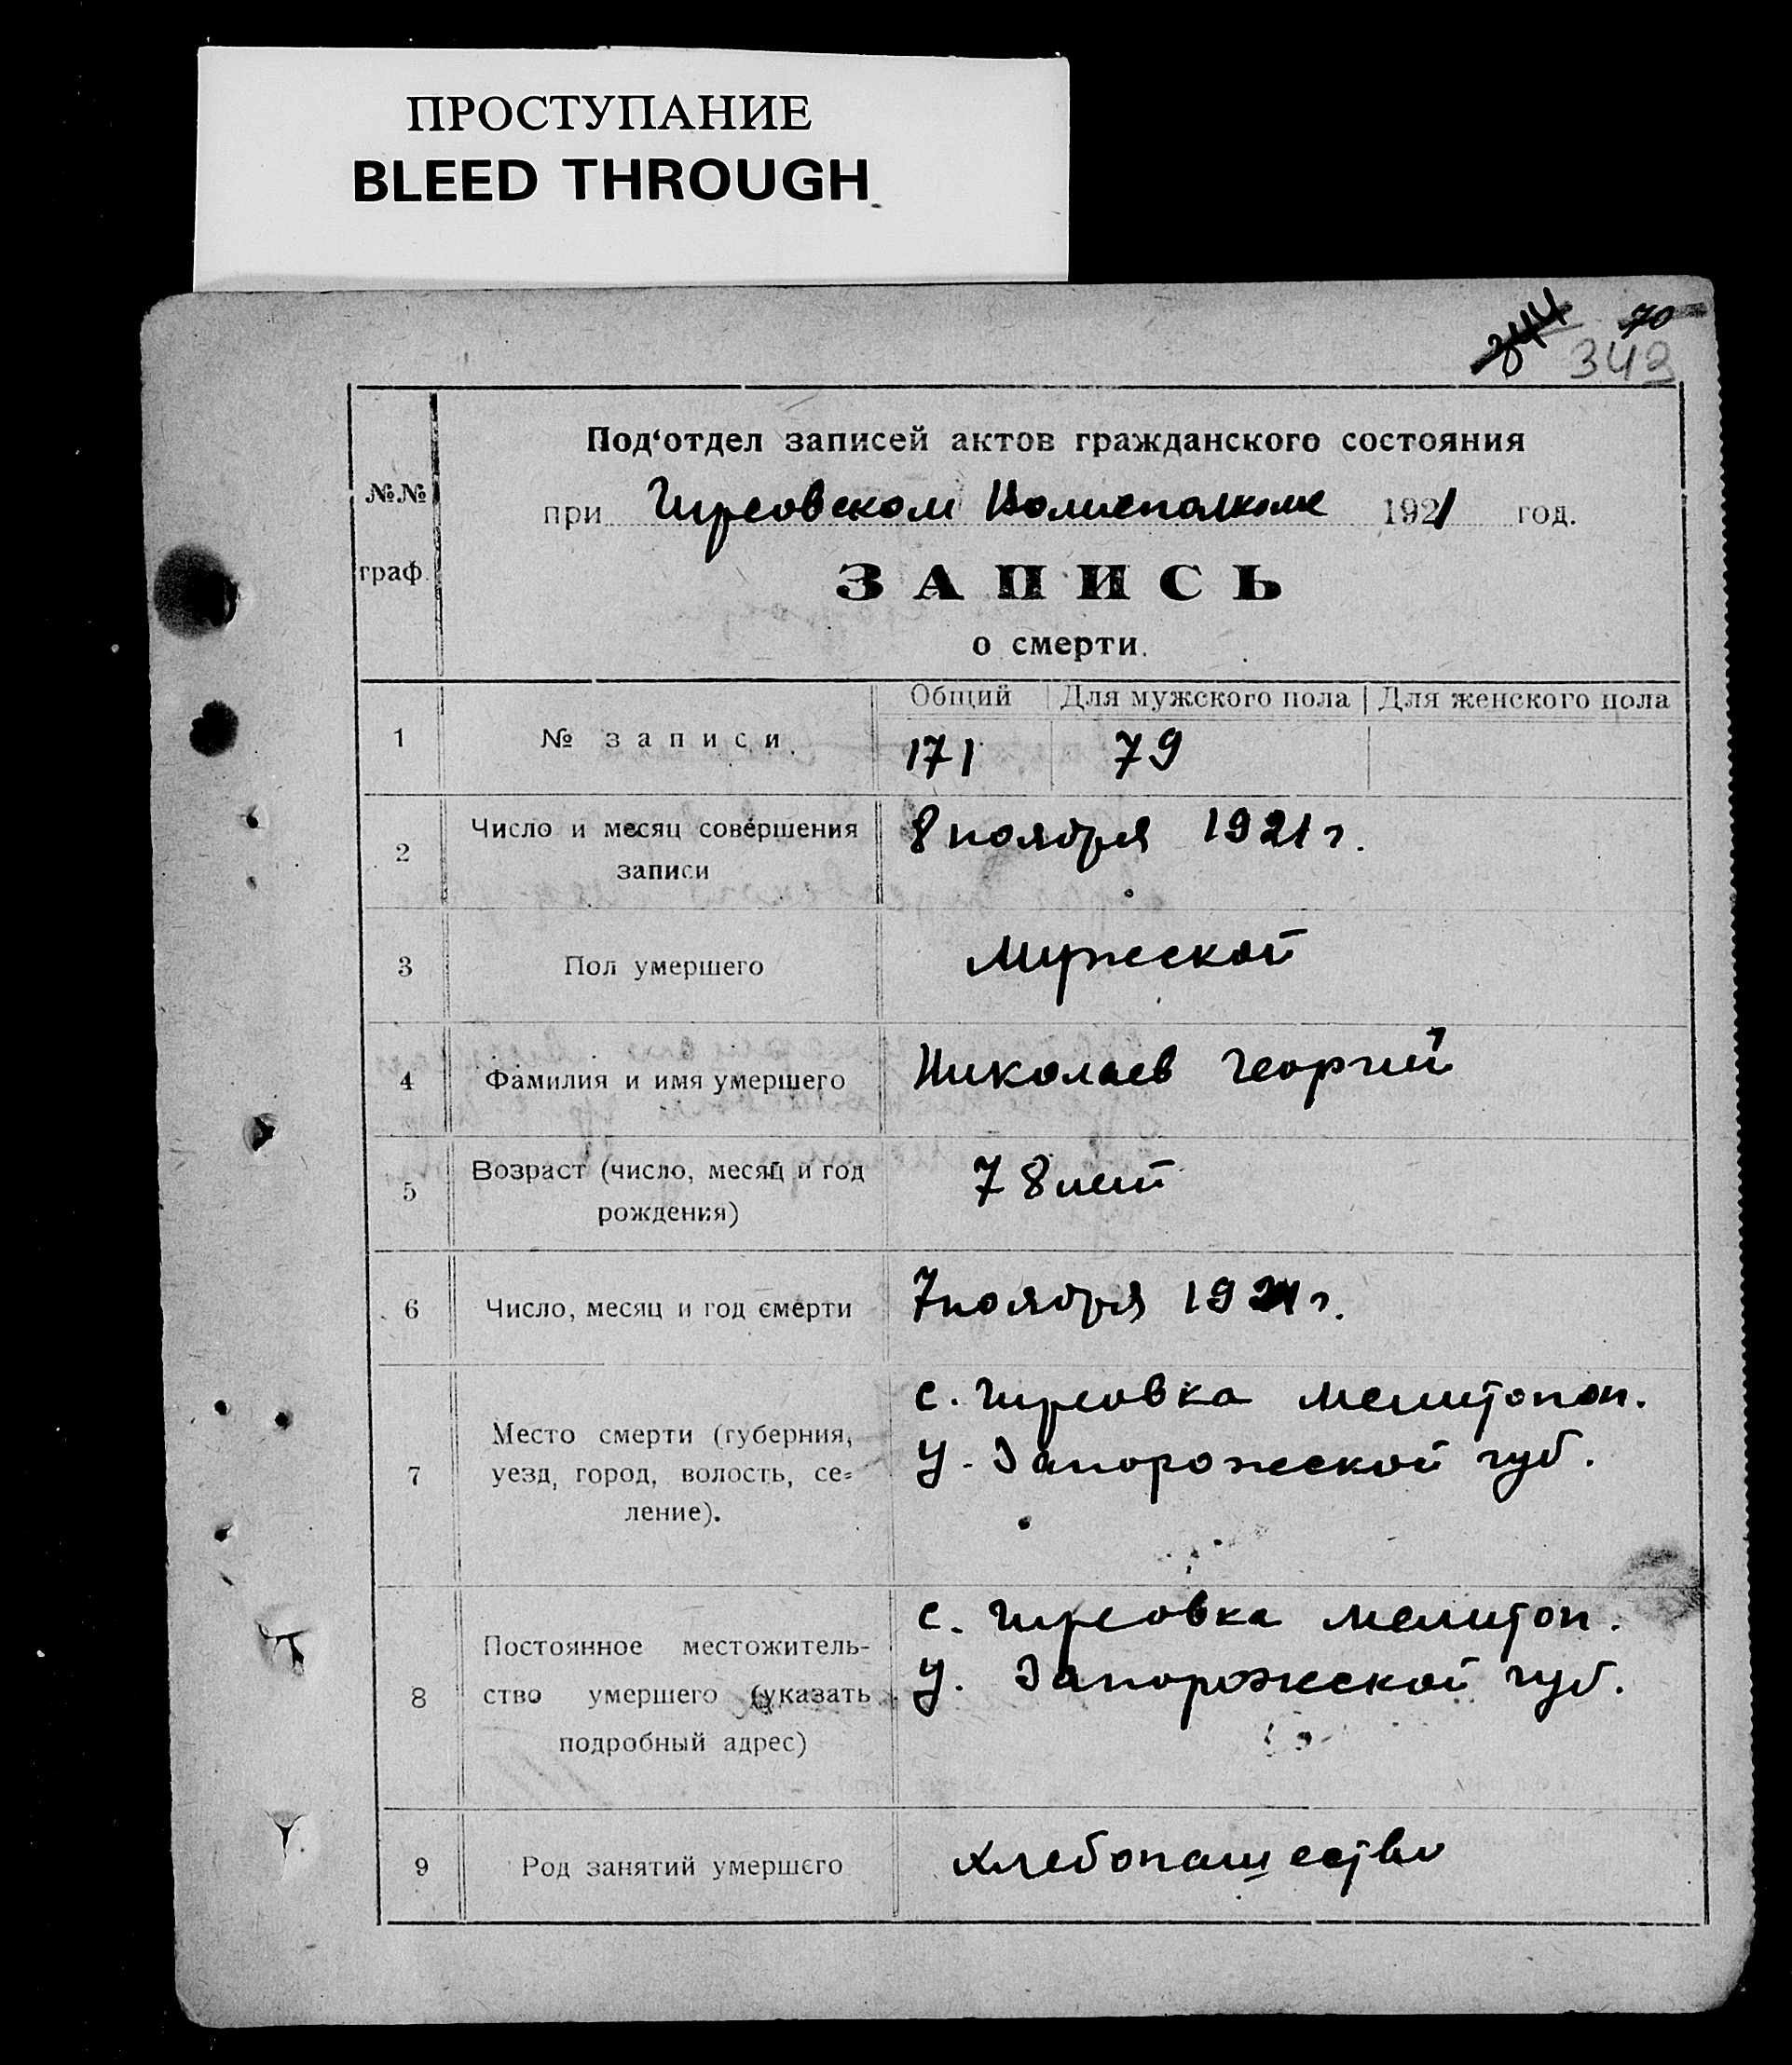 ПРОСТУПАНИЕ
BLEED THROUGH
344 70
342
Под‘отдел записей актов гражданского состояния
№№
при Гирсовском Волисполкоме 1921 год.
граф.
ЗАПИСЬ
о смерти.
Общий Для мужского пола Для женского пола
1 № записи. 171 79
2 Число и месяц совершения 8 ноября 1921 г.
записи
3 Пол умершего Мужеской
4 Фамилия и имя умершего Николаев Георгий
5 Возраст (число, месяц и год 78 лет
рождения)
6 Число, месяц и год смерти 7 ноября 1921 г.
с. Гирсовка Мелитопол.
Место смерти (губерния,
у. Запорожской губ.
7 уезд, город, волость, се=
ление).
с. Гирсовка Мелитоп.
Постоянное местожитель-
у. Запорожской губ.
8 ство умершего (указать
подробный адрес)
9 Род занятий умершего хлебопашество